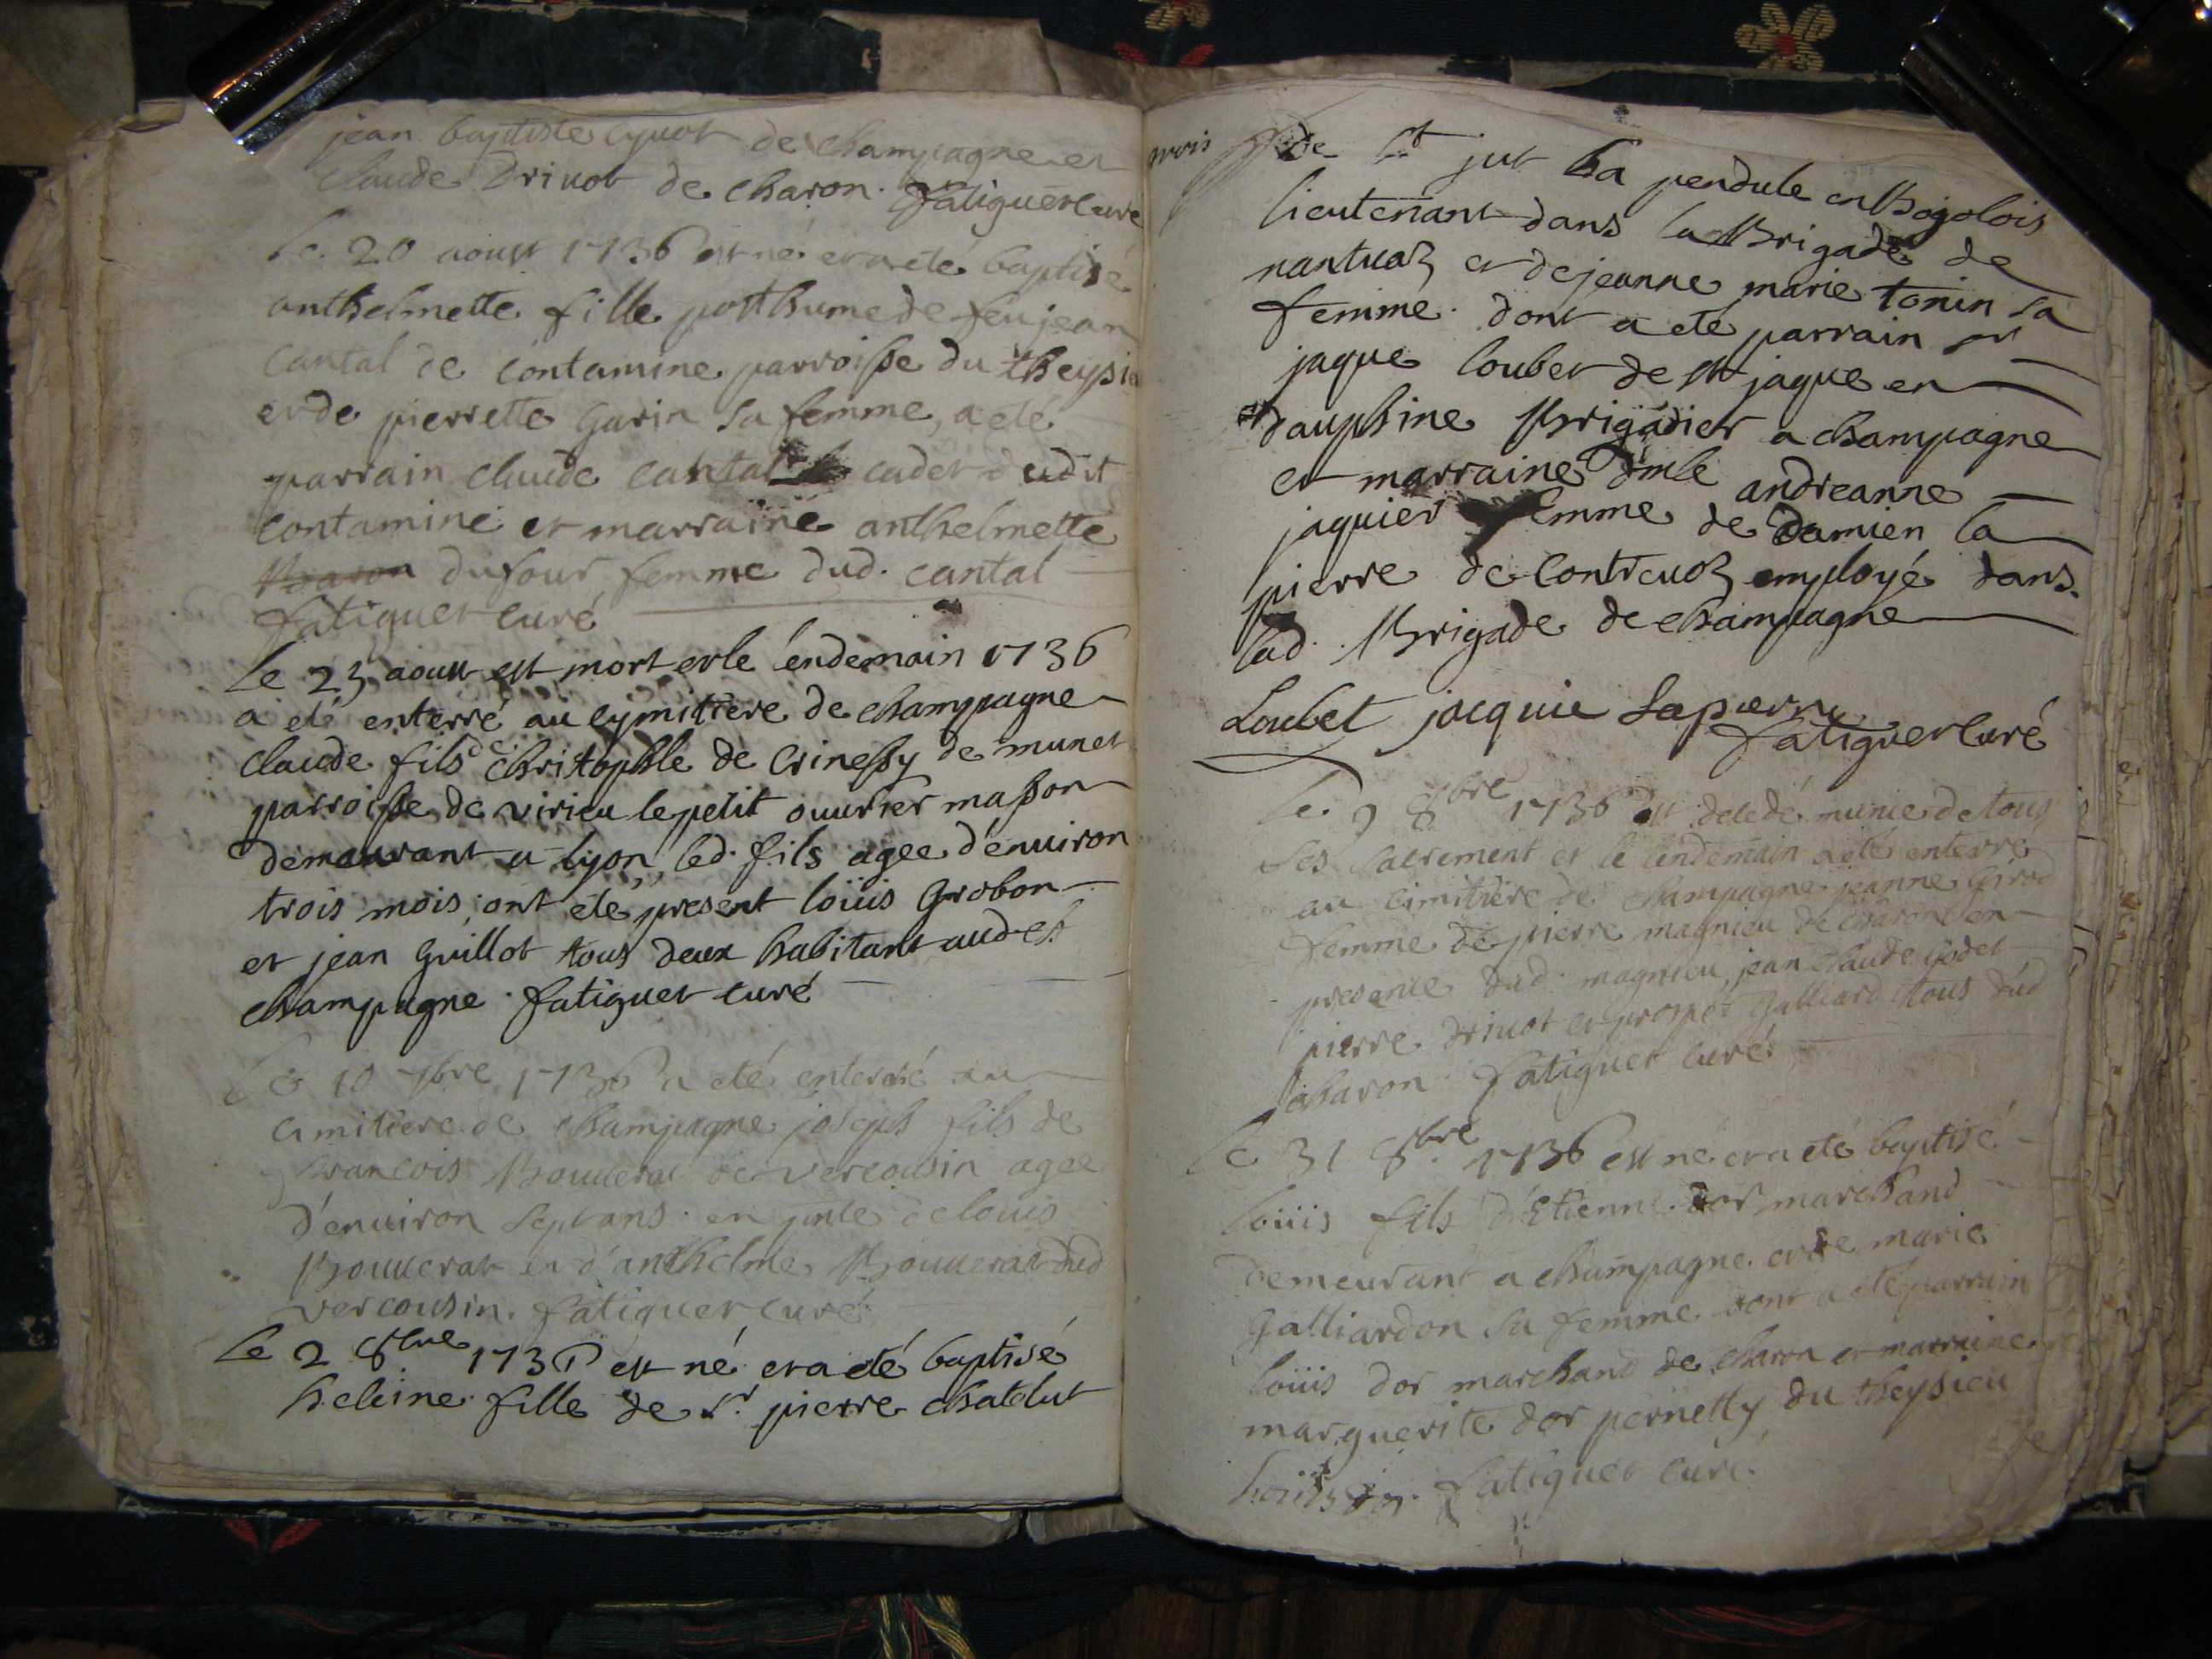 jean baptiste cyvot de champagne et
claude Drivot de charon. fatiguet curé
le 20 aoust 1736 est né et a eté baptisé
anthelmette fille posthume de feu jean
cantal de contamine parroisse du theysieu
et de pierrette Gurin sa femme, a eté
parrain claude cantal cadet dudit
contamine et marraine anthelmette
dufour femme dud. cantal
fatiguet curé
le 23 aoust est mort et le lendemain 1736
a eté enterré au cymitiere de champagne
claude fils christophle de Crinessy de munet
parroisse de virieu le petit ouvrier masson
demeurant a lyon, led. fils agee d'environ
trois mois, ont eté present loüis Grobon
et jean Guillot tous deux habitant aud et
champagne. fatiguet curé
le 10 7bre 1736 a eté enterré au
cimitiere de champagne joseph fils de
francois Bouverat de vercousin agee
d'environ sept ans. en pnce de louis
Bouverat et d'anthelme Bouverat dud
vercousin. fatiguet curé
le 2 8bre 1736 est né et a eté baptisé
heleine fille de sr. pierre chatelut
de st just la pendule en Bogolois
lieutenant dans la Brigade de
nantuaz et de jeanne marie tonin sa
femme. dont a eté parrain sr
jaque loubet de st jaque en
dauphine Brigadier a champagne
et marraine dmle andreanne
jaquier femme de Damien la
pierre de Contrevoz employé dans
lad. Brigade de champagne
Loubet jacquie Lapierre
fatiguet curé
le 9 8bre 1736 est decedé munie de tous
ses sacrement et le lendemain a eté enterré
au cimitiere de champagne jeanne Girod
femme de pierre magnieu de charon en
presance dud. magnieu, jean claude Godet
pierre Drivot et prosper Galliard tous dud
charon. fatiguet curé.
le 31 8bre 1736 est né et a eté baptisé
loüis fils d'Etienne dor marchand
demeurant a champagne et de marie
Galliardon sa femme. dont a eté parrain
loüis dor marchand de charon et marraine
marguerite dor pernetty du theysieu
Loüis dor. fatiguet curé.